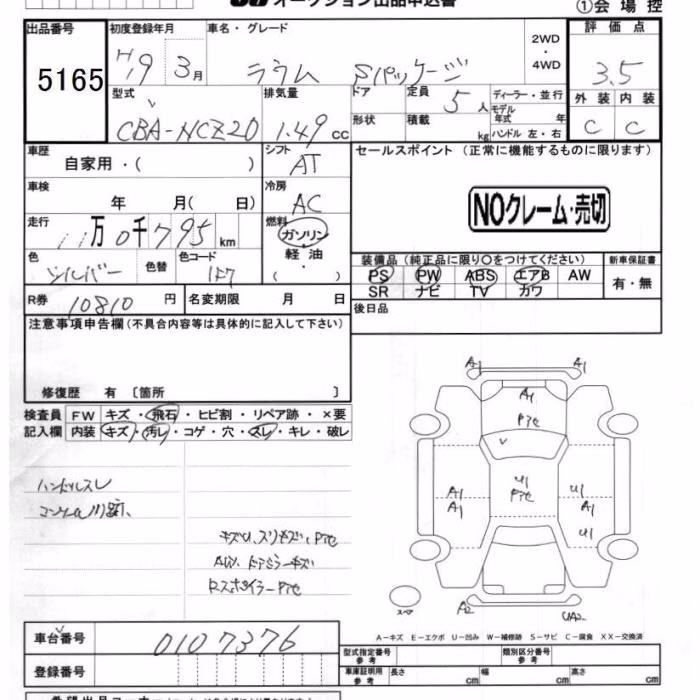 オークション出品申込書
①会場控
出品番号 5165
初度登録年月 H19 3月
車名・グレード ラウム Sパッケージ
2WD ・ 4WD
評価点 3.5
型式 CBA-NCZ20
排気量 1.49 cc
ドア
形状
定員 5人
積載 kg
ディーラー・並行
モデル年式 年
ハンドル 左・右
外装 C 内装 C
車歴 自家用・( )
シフト AT
セールスポイント (正常に機能するものに限ります)
車検 年 月( 日)
冷房 AC
NOクレーム・売切
走行 11万0千795km
燃料 ガソリン 軽油 ・ ( )
色 シルバー 色替 色コード 1F7
装備品 (純正品に限り○をつけてください)
新車保証書
PS PW ABS エアB AW
SR ナビ TV カワ
有・無
R券 10810円 名変期限 月 日
後日品
注意事項申告欄(不具合内容等は具体的に記入して下さい)
修復歴 有 〔箇所 〕
検査員記入欄
FW キズ・飛石・ヒビ割・リペア跡・×要
内装 キズ・汚レ・コゲ・穴・スレ・キレ・破レ
ハンドルスレ
A1 A1
A1
Pitc
U1
Pitc
A1
A1
U1
A1
U1
スペア
A2 UA2
A-キズ E-エクボ U-凹み W-補修跡 S-サビ C-腐食 XX-交換済
車台番号 0107376
登録番号
型式指定番号 参考
類別区分番号 参考
車庫証明用 参考 長さ cm 幅 cm 高さ cm